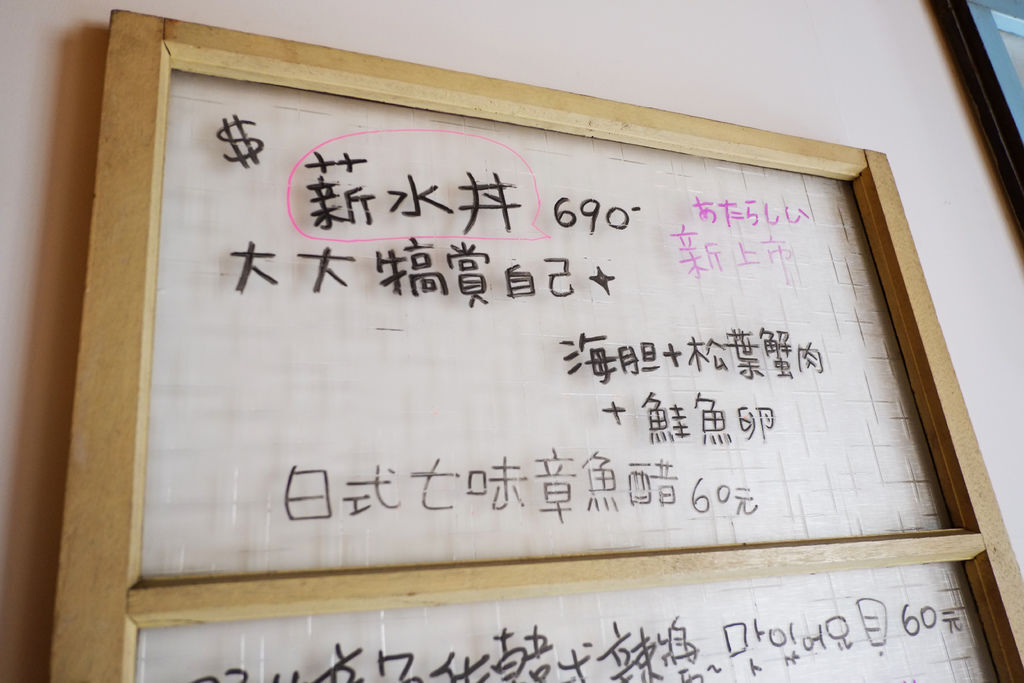 $ 薪水丼 690-
あたらしい
新上市
大大犒賞自己★
海胆+松葉蟹肉
+鮭魚卵
日式七味章魚醋 60元
韓式辣 맛있어요 60元